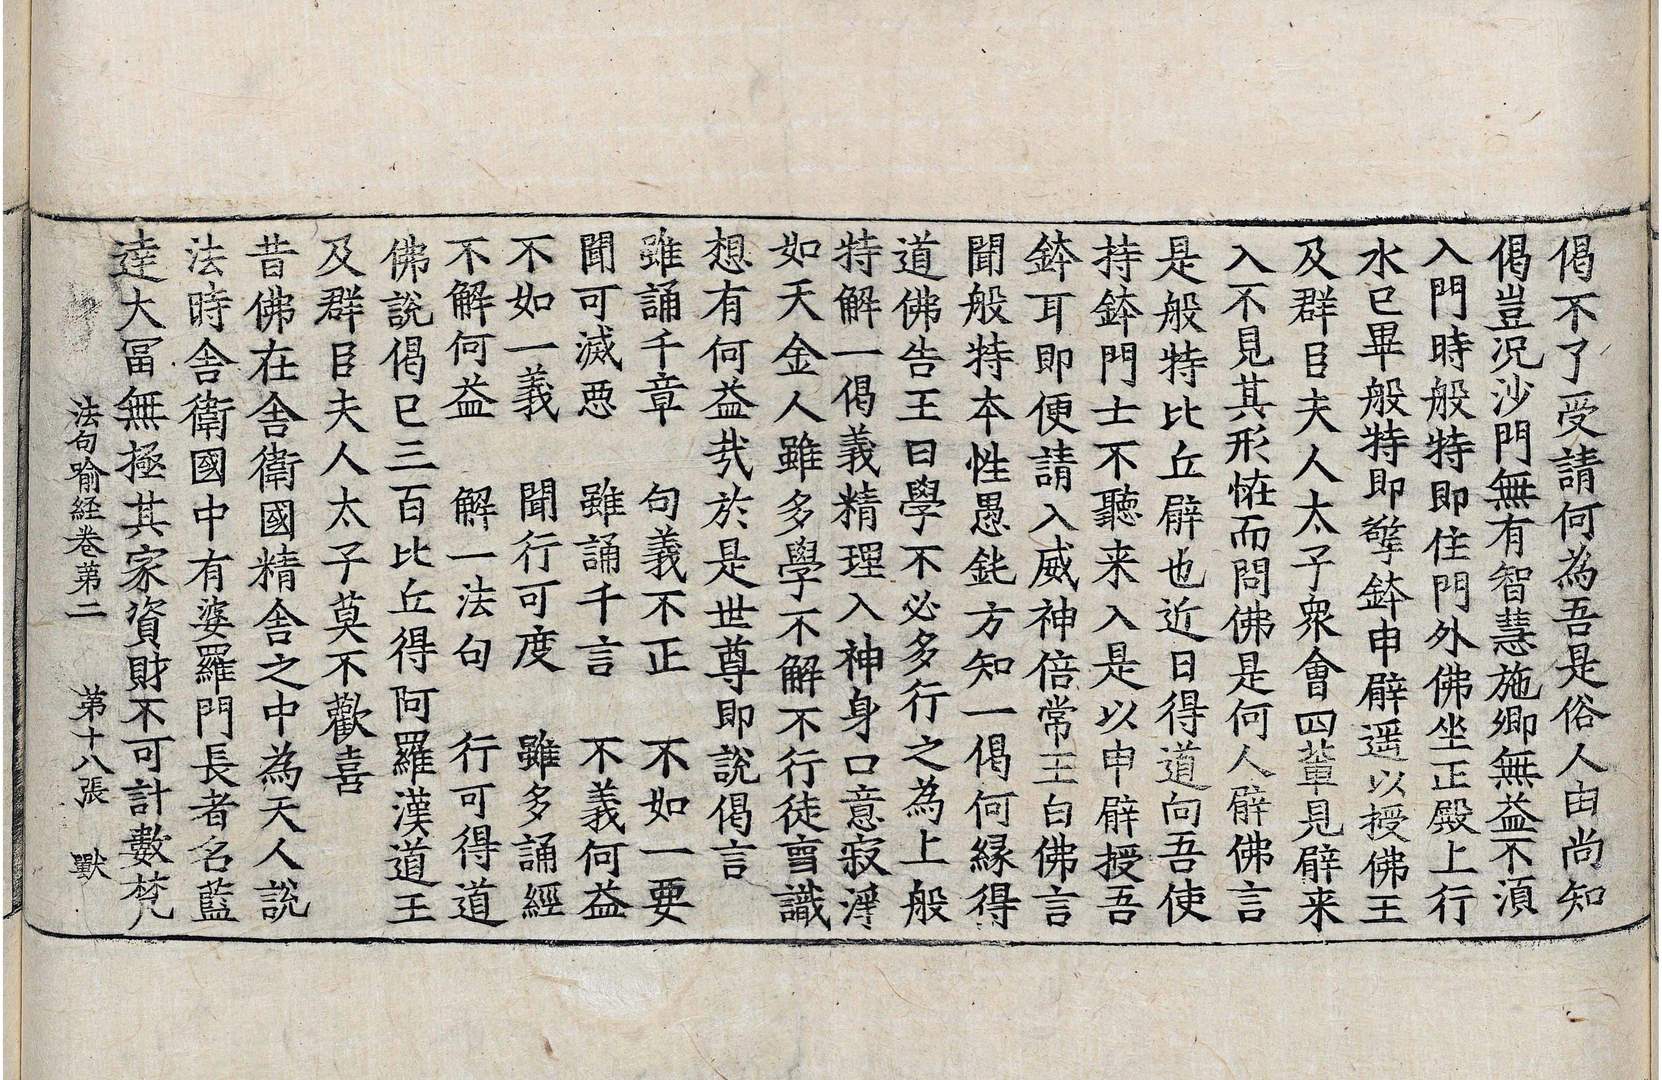 偈不了受請何為吾是俗人由尚知
偈豈況沙門無有智慧施卿無益不湏
入門時般特即住門外佛坐正殿上行
水已畢般特即擎鉢申臂遥以授佛王
及群臣夫人太子衆會四輩見臂来
入不見其形恠而問佛是何人臂佛言
是般特比丘臂也近日得道向吾使
持鉢門士不聽来入是以申臂授吾
鉢耳即便請入威神倍常王白佛言
聞般特本性愚鈍方知一偈何縁得
道佛告王曰學不必多行之為上般
特解一偈義精理入神身口意寂淨
如天金人雖多學不解不行徒喪識
想有何益㢤於是世尊即說偈言
雖誦千章　句義不正　不如一要
聞可滅惡　雖誦千言　不義何益
不如一義　聞行可度　雖多誦經
不解何益　解一法句　行可得道
佛說偈已三百比丘得阿羅漢道王
及群臣夫人太子莫不歡喜
昔佛在舎衛國精舎之中為天人說
法時舎衛國中有婆羅門長者名藍
達大冨無極其家資財不可計數梵
法句喻経卷第二　第十八張　獸